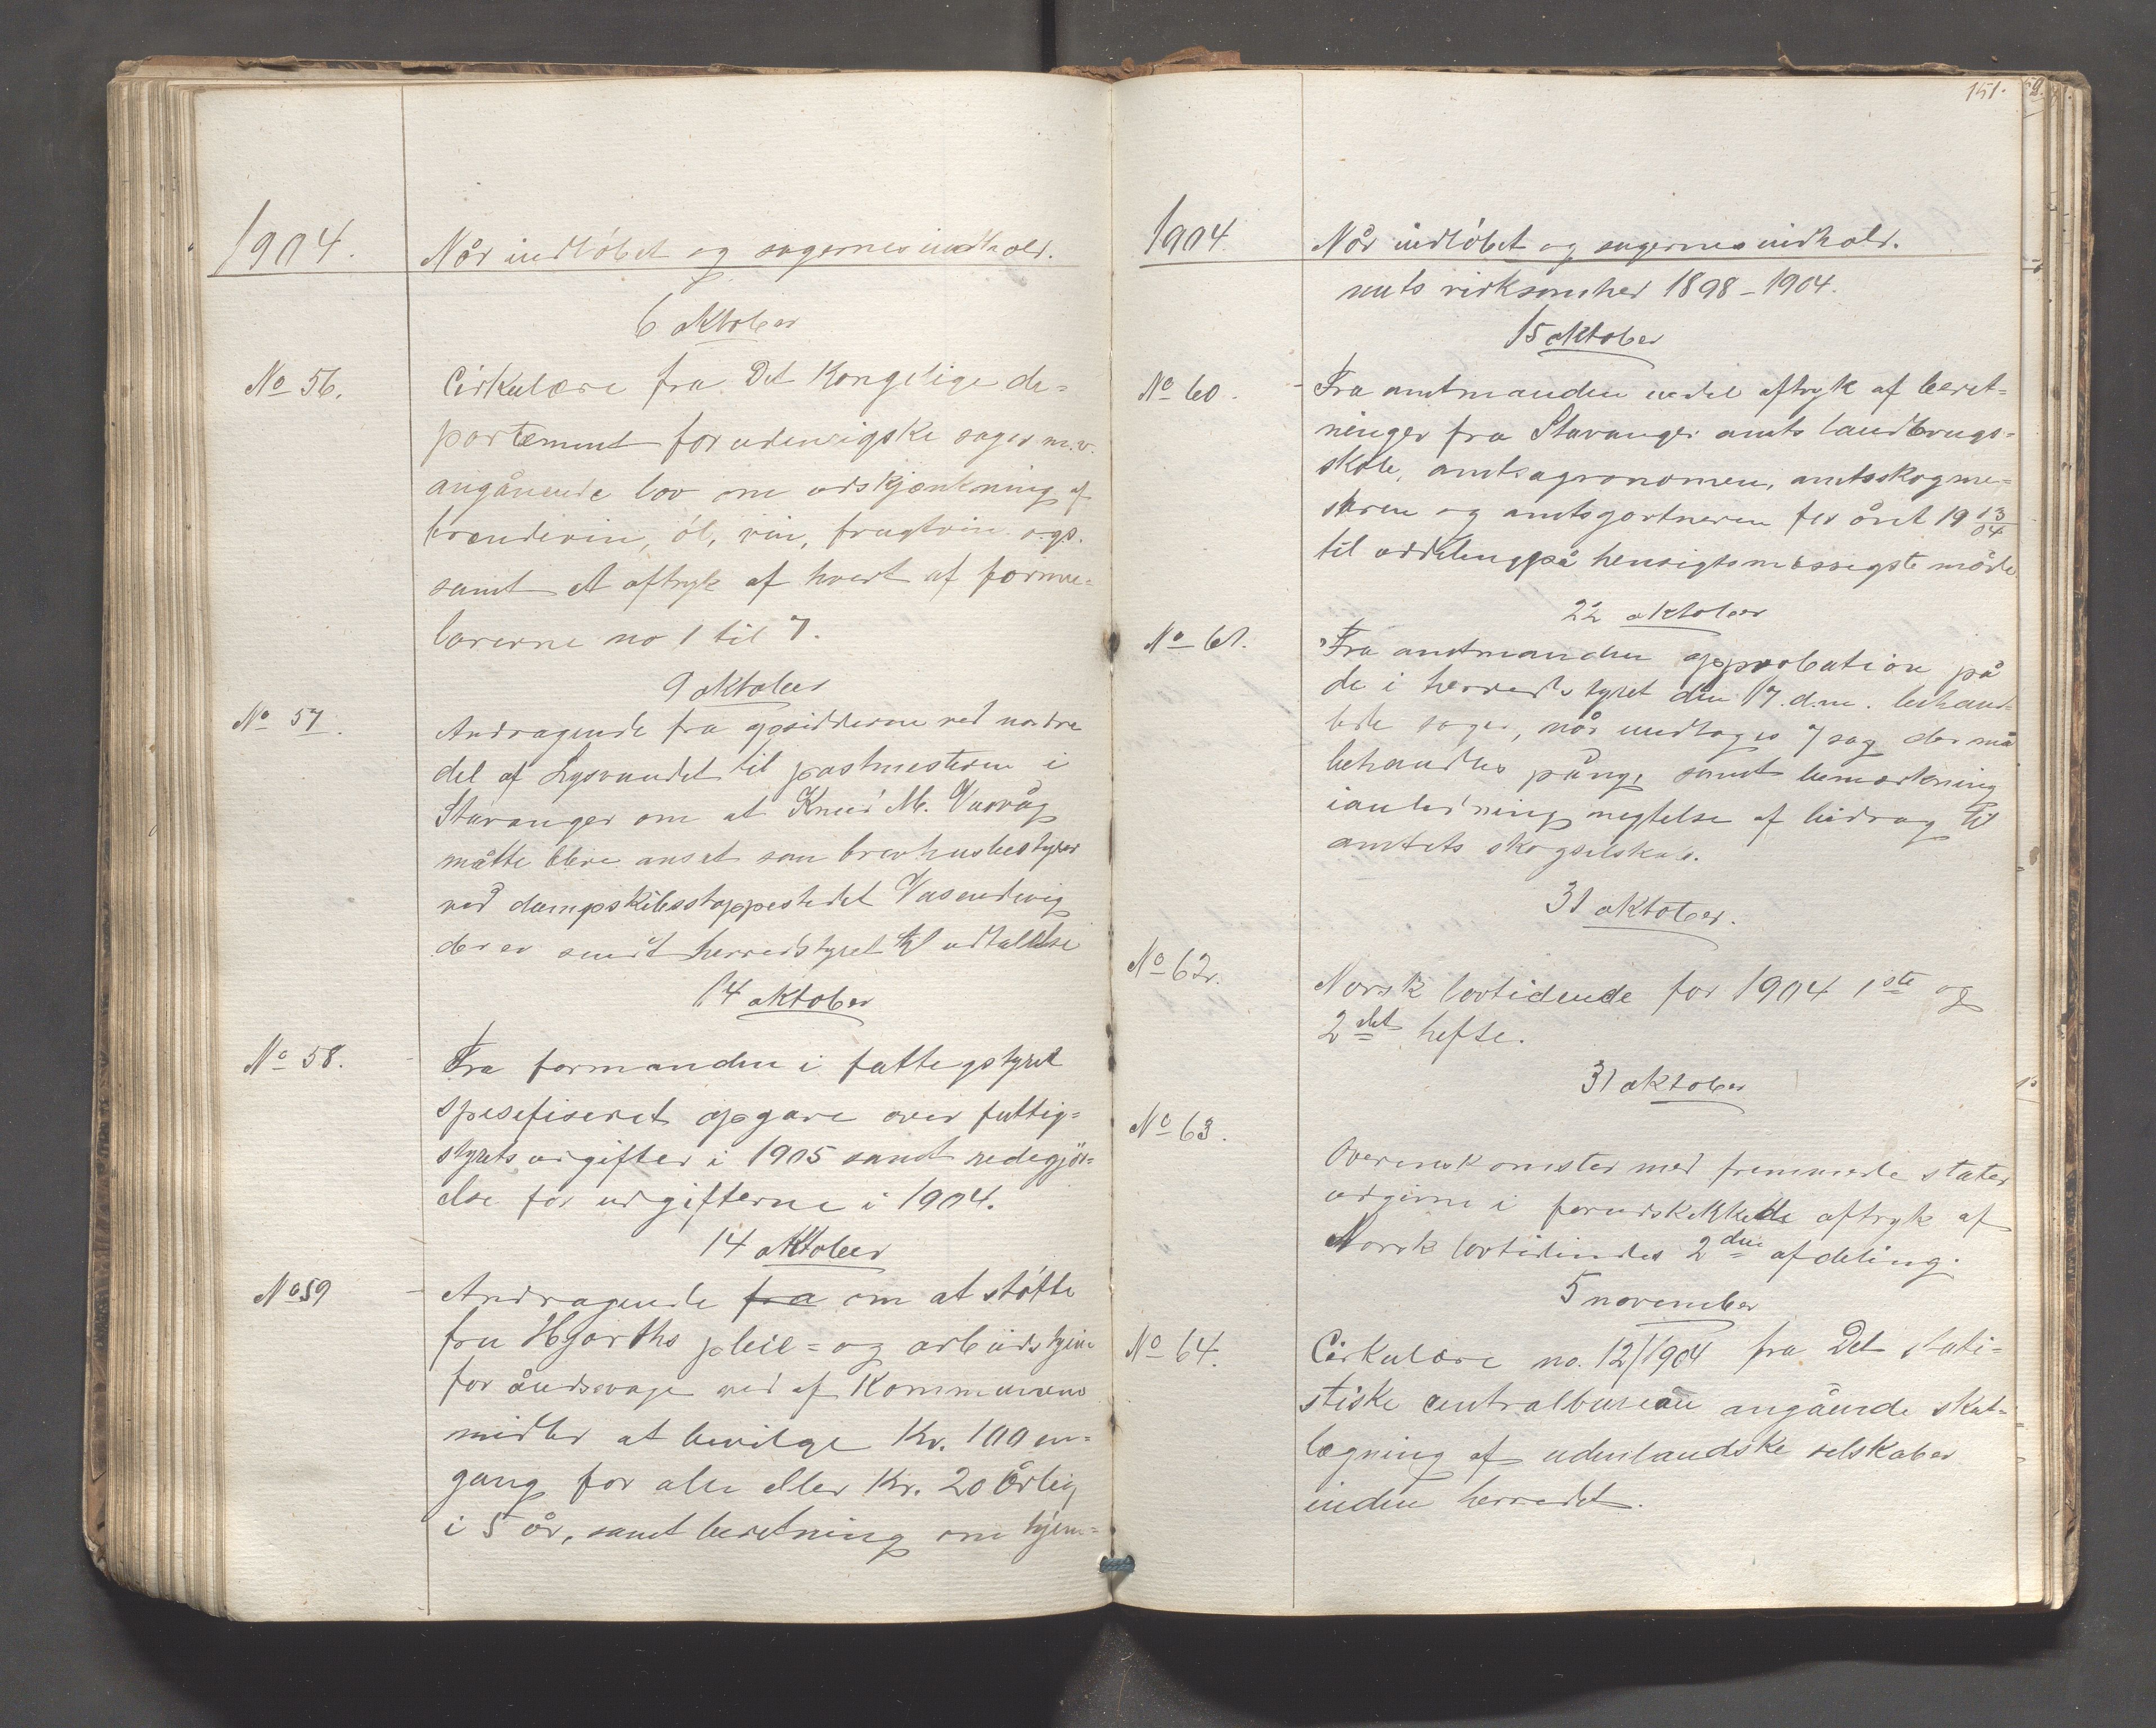 1904. Når indløbet og sagernes indhold.
6 oktober
No 56. Cirkulære fra Det Kongelige de=
partement for udenrigske sager m.v.
angående lov om udskjænkning af
brændevin, øl, vin, frugtvin o.g.s.
samt et aftryk af hvert af formu=
larerne no 1 til 7.
9 oktober
No 57. Andragende fra opsidderne ved nordre
del af Lysvandet til postmesteren i
Stavanger om at Knud M. Vaavåg
måtte blive ansat som brevhusbestyrer
ved dampskibsstoppestedet Vasendvig
der er sendt herredstyret til udtalelse
14 oktober
No 58. Fra formanden i fattigstyret
spesefiseret opgave over fattig=
styrets udgifter i 1905 samt redegjør=
else for udgifterne i 1904.
14 oktober
No 59 Andragende fra om at støtte
fru Hjorths pleie= og arbeidshjem
for åndssvage ved af Kommunens
midler at bevilge Kr. 100 en=
gang for alle eller Kr. 20 årlig
i 5 år, samt beretning om hjem=
151.
1904. Når indløbet og sagernes indhold.
mets virksomhed 1898-1904.
15 oktober
No 60. Fra amtmanden endel aftryk af beret=
ninger fra Stavanger amts landbrugs=
skole, amtsagronomen, amtsskogme=
steren og amtsgartneren for året 19 03/04
til uddeling på hensigtsmæssigste måde
22 oktober
No 61. Fra amtmanden approbation på
de i herredstyret den 17. d.m. behand=
lede sager, når undtages 7 sag der må
behandles påny, samt bemærkning
ianledning negtelse af bidrag til
amtets skogselskab.
31 oktober.
No 62. Norsk lovtidende for 1904 1ste og
2det hefte.
31 oktober
No 63. Overenskomster med fremmede stater
udgivne i forudskikkede aftryk af
Norsk lovtidendes 2den afdeling.
5 november
No 64. Cirkulære no. 12/1904 fra Det stati=
stiske centralbureau angående skat=
lægning af udenlandske selskaber
inden herredet.